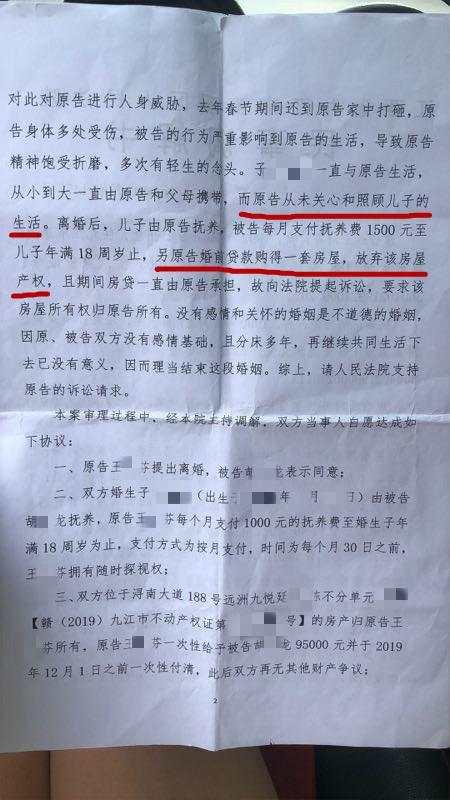 对此对原告进行人身威胁，去年春节期间还到原告家中打砸，原
告身体多处受伤，被告的行为严重影响到原告的生活，导致原告
精神饱受折磨，多次有轻生的念头。子 一直与原告生活，
从小到大一直由原告和父母携带，而原告从未关心和照顾儿子的
生活。离婚后，儿子由原告抚养，被告每月支付抚养费 1500 元至
儿子年满 18 周岁止，另原告婚前贷款购得一套房屋，放弃该房屋
产权，且期间房贷一直由原告承担，故向法院提起诉讼，要求该
房屋所有权归原告所有。没有感情和关怀的婚姻是不道德的婚姻，
因原、被告双方没有感情基础，且分床多年，再继续共同生活下
去已没有意义，因而理当结束这段婚姻。综上，请人民法院支持
原告的诉讼请求。
本案审理过程中，经本院主持调解，双方当事人自愿达成如
下协议：
一、原告王 芬提出离婚，被告 龙表示同意；
二、双方婚生子 （出生于 年 月 日）由被告
胡 龙抚养，原告王 芬每个月支付 1000 元的抚养费至婚生子年
满 18 周岁为止，支付方式为按月支付，时间为每个月 30 日之前，
王 芬拥有随时探视权；
三、双方位于浔南大道 188 号远洲九悦廷 栋不分单元
【赣（2019）九江市不动产权证第 号】的房产归原告王
芬所有，原告王 芬一次性给予被告胡 龙 95000 元并于 2019
年 12 月 1 日之前一次性付清，此后双方再无其他财产争议；
2